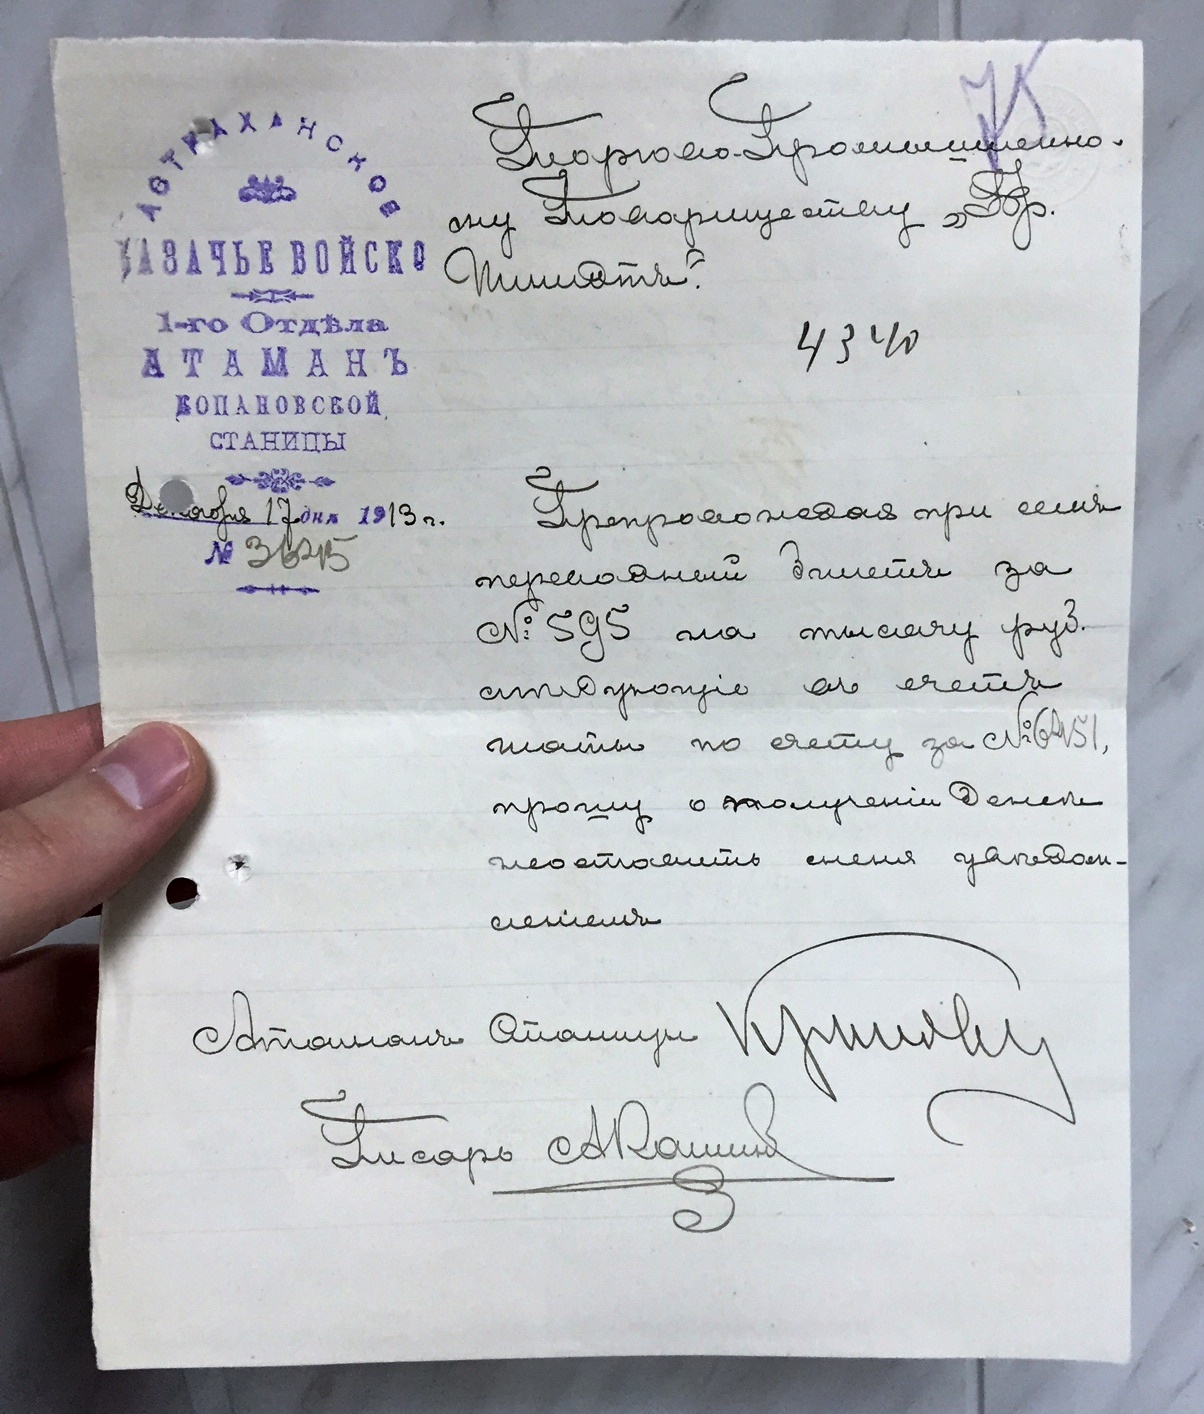 АСТРАХАНСКОЕ
КАЗАЧЬЕ ВОЙСКО
1-го Отдѣла
АТАМАНЪ
КОПАНОВСКОЙ
СТАНИЦЫ
Декабря 17 дня 1913 г.
№ 3645
Торгово-Промышленно-
му Товариществу „Бр.
4340
Препровождая при семъ
переводный билетъ за
№ 595 на тысячу руб.
слѣдующіе въ счетъ
платы по счету за № 6451,
прошу о полученіи денегъ
неоставить меня увѣдом-
леніемъ
Атаманъ Станицы
Писарь АКашинъ